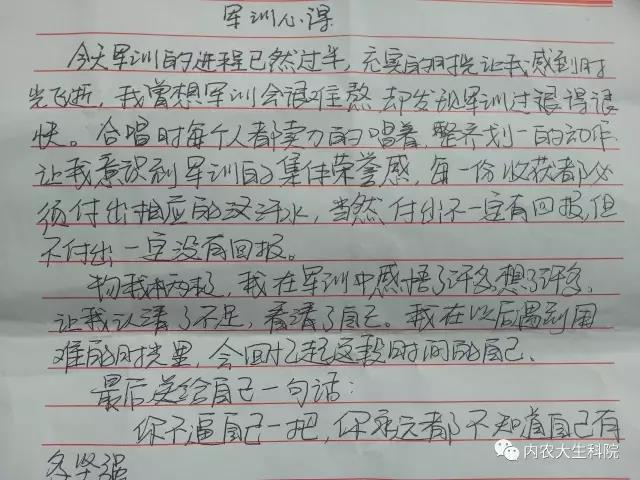 军训心得
今天军训的进程已然过半，充实的时光让我感到时
光飞逝，我曾想军训会很难熬却发现军训过得很
快。合唱时每个人都卖力的唱着，整齐划一的动作
让我意识到军训的集体荣誉感，每一份收获都必
须付出相应的汗水，当然付出不一定有回报，但
不付出一定没有回报。
物我两忘，我在军训中感悟了许多，想了许多，
让我认清了不足，看清了自己。我在以后遇到困
难的时光里，会回忆起这段时间的自己。
最后送给自己一句话：
你不逼自己一把，你永远都不知道自己有
多坚强
内农大生科院